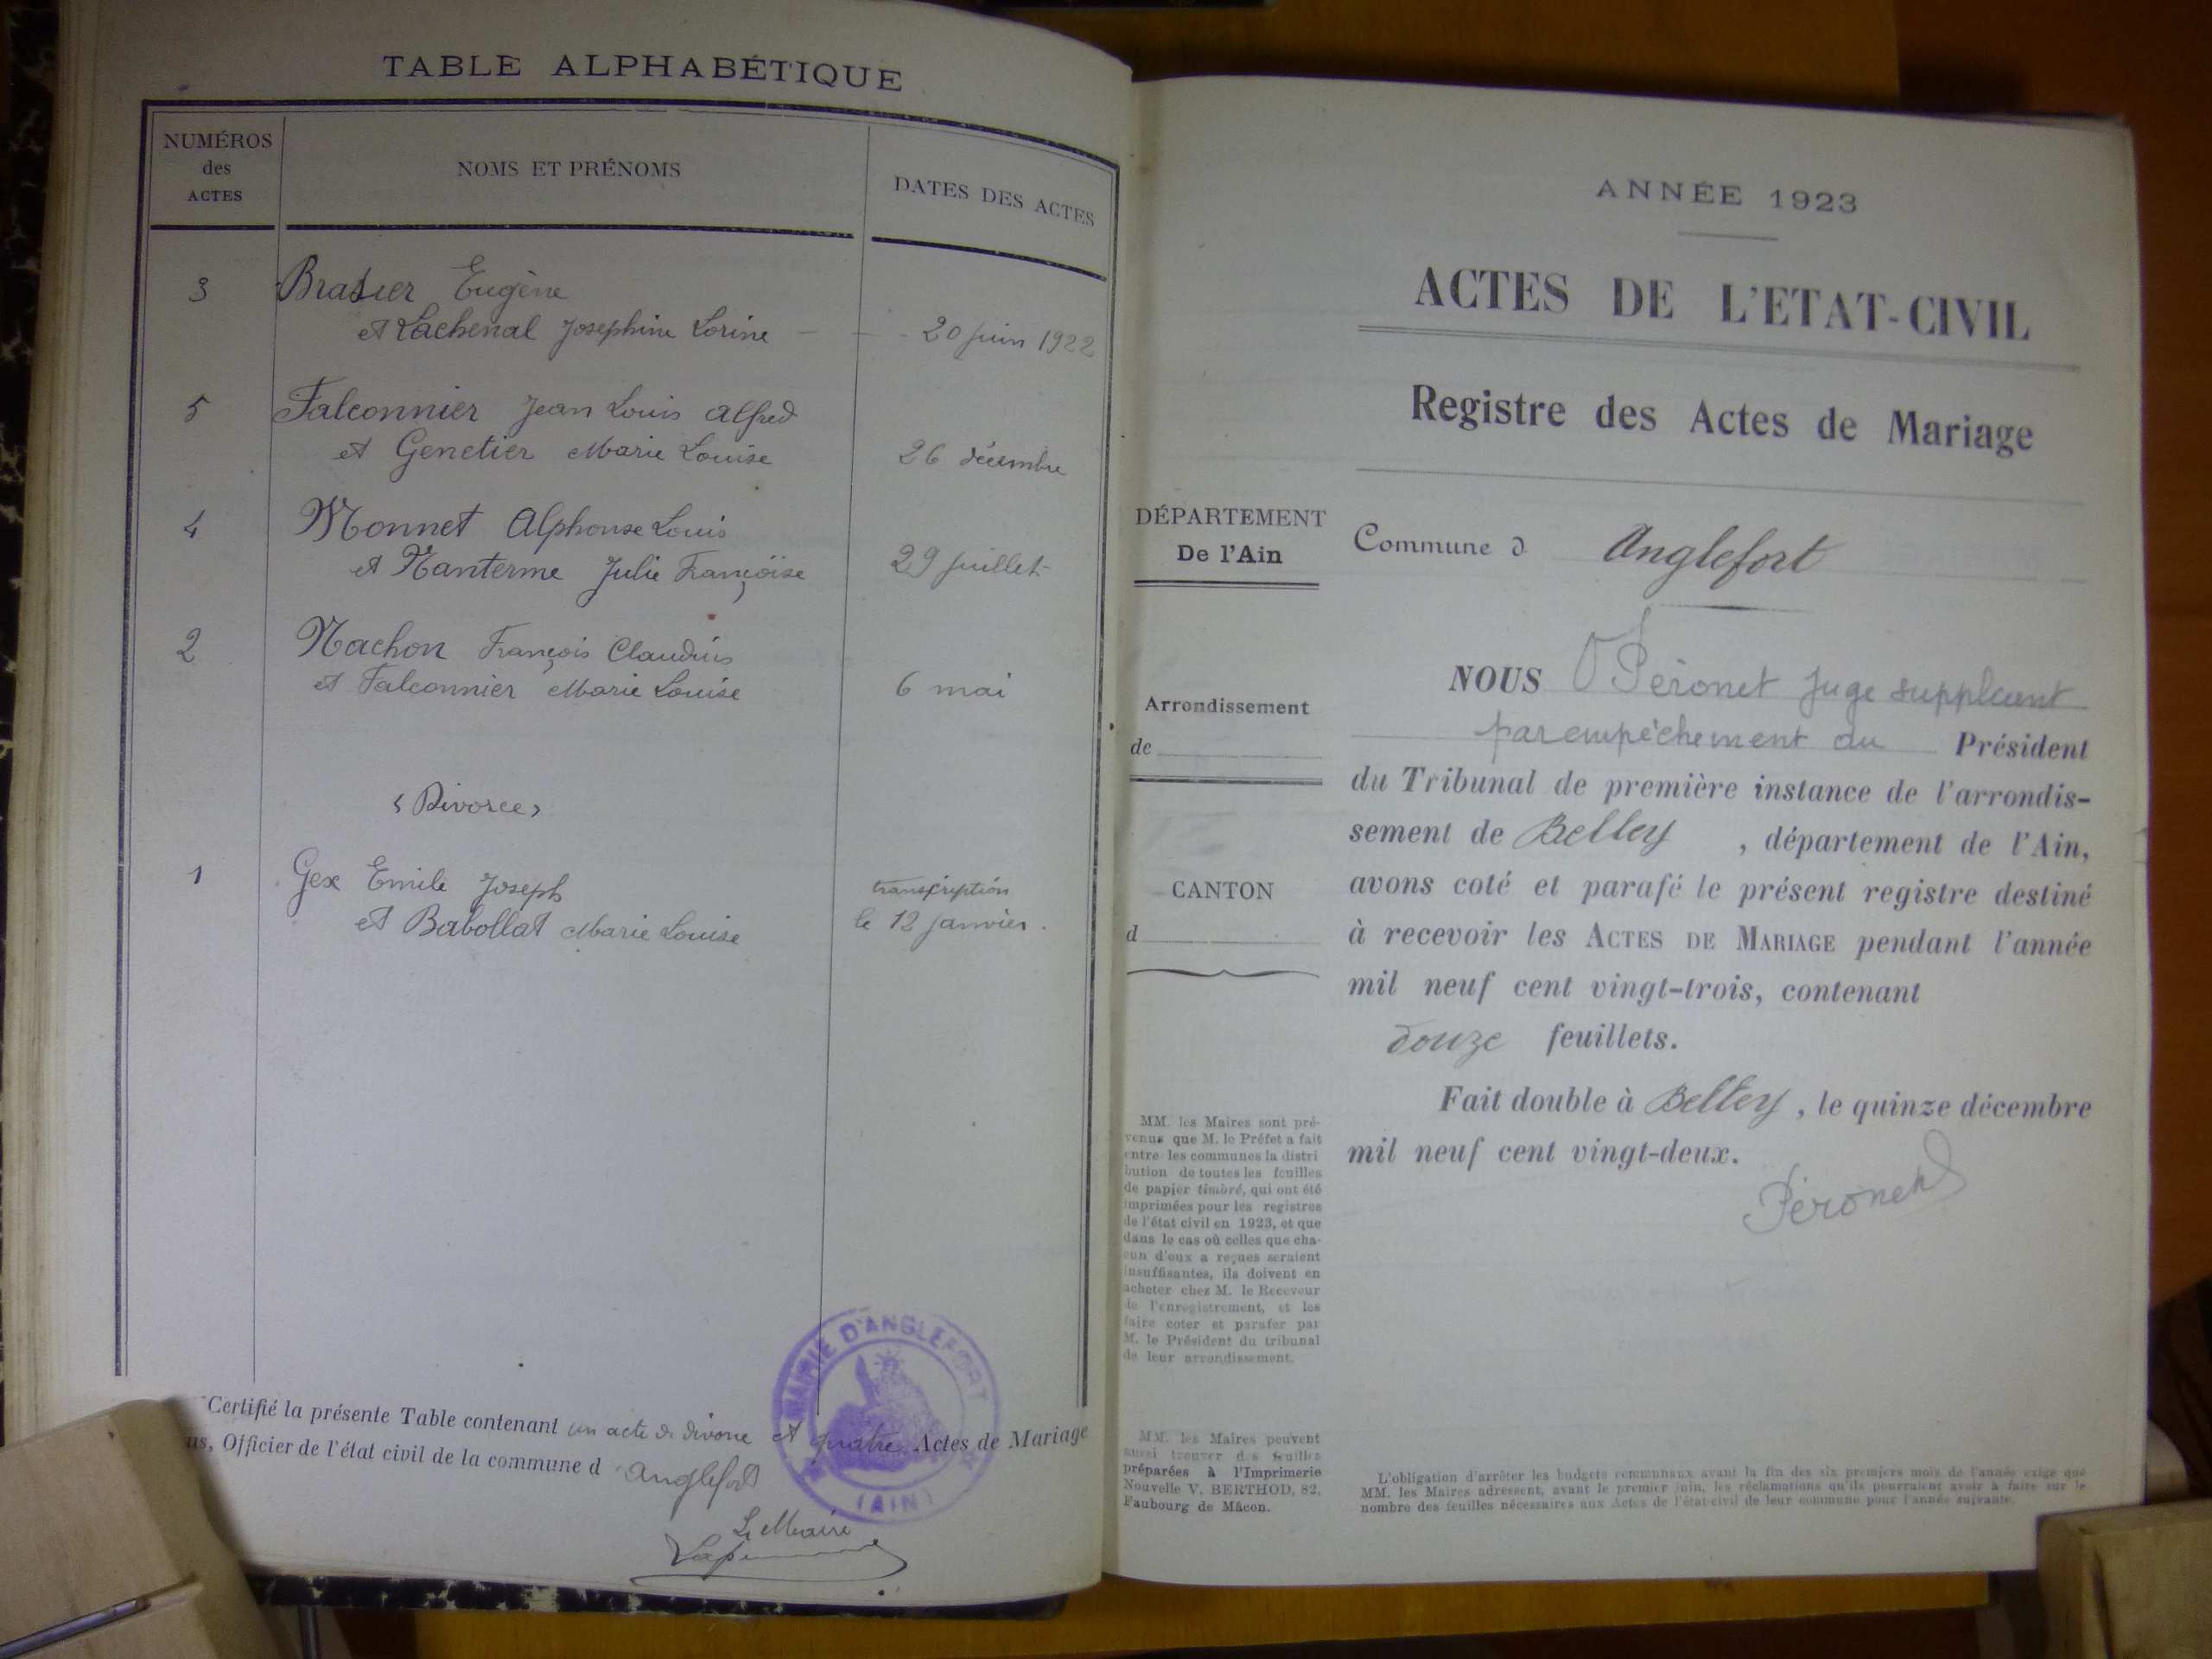 TABLE ALPHABÉTIQUE
NUMÉROS
des
ACTES
NOMS ET PRÉNOMS
DATES DES ACTES
3 Brasier Eugène
et Lachenal Josephine Lorine — 20 juin 1922
5 Falconnier Jean Louis Alfred
et Genetier Marie Louise 26 décembre
4 Monnet Alphonse Louis
et Nanterme Julie Françoise 29 juillet
2 Nachon François Claudius
et Falconnier Marie Louise 6 mai
(Divorce)
1 Gex Emile Joseph transcription
et Babollat Marie Louise le 12 janvier.
Certifié la présente Table contenant un acte de divorce et quatre Actes de Mariage
us, Officier de l'état civil de la commune d Anglefort
MAIRIE D'ANGLEFORT
(AIN)
Le Maire
ANNÉE 1923
ACTES DE L'ETAT-CIVIL
Registre des Actes de Mariage
DÉPARTEMENT
De l'Ain
Arrondissement
de
CANTON
d
MM. les Maires sont pré-
venus que M. le Préfet a fait
entre les communes la distri
bution de toutes les feuilles
de papier timbré, qui ont été
imprimées pour les registres
de l'état civil en 1923, et que
dans le cas où celles que cha-
cun d'eux a reçues seraient
insuffisantes, ils doivent en
acheter chez M. le Receveur
de l'enregistrement, et les
faire coter et parafer par
M. le Président du tribunal
de leur arrondissement.
MM. les Maires peuvent
aussi trouver des feuilles
préparées à l'Imprimerie
Nouvelle V. BERTHOD, 82,
Faubourg de Mâcon.
Commune d Anglefort
NOUS Péronet juge suppléant
par empêchement du Président
du Tribunal de première instance de l'arrondis-
sement de Belley, département de l'Ain,
avons coté et parafé le présent registre destiné
à recevoir les ACTES DE MARIAGE pendant l'année
mil neuf cent vingt-trois, contenant
douze feuillets.
Fait double à Belley, le quinze décembre
mil neuf cent vingt-deux.
Péronet
L'obligation d'arrêter les budgets communaux avant la fin des six premiers mois de l'année exige que
MM. les Maires adressent, avant le premier juin, les réclamations qu'ils pourraient avoir à faire sur le
nombre des feuilles nécessaires aux Actes de l'état-civil de leur commune pour l'année suivante.